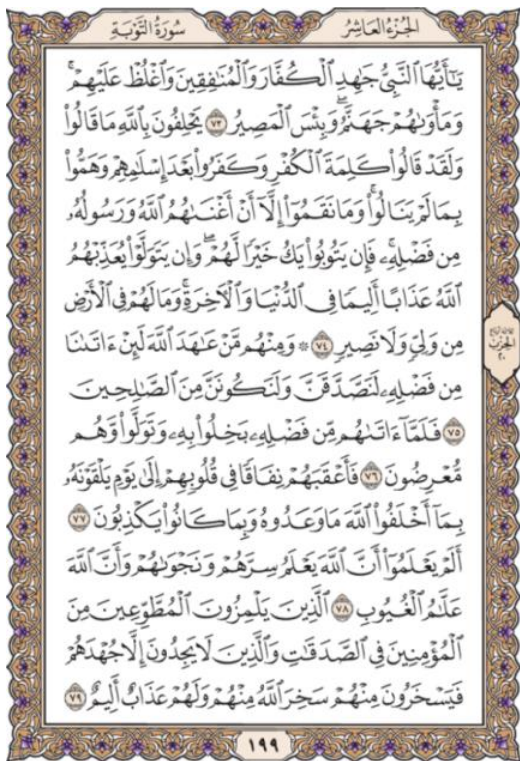 الجزء العاشر
سورة التوبة
يَـٰٓأَيُّهَا ٱلنَّبِىُّ جَـٰهِدِ ٱلْكُفَّارَ وَٱلْمُنَـٰفِقِينَ وَٱغْلُظْ عَلَيْهِمْ ۚ
وَمَأْوَىٰهُمْ جَهَنَّمُ ۖ وَبِئْسَ ٱلْمَصِيرُ ٧٣ يَحْلِفُونَ بِٱللَّهِ مَا قَالُوا۟
وَلَقَدْ قَالُوا۟ كَلِمَةَ ٱلْكُفْرِ وَكَفَرُوا۟ بَعْدَ إِسْلَـٰمِهِمْ وَهَمُّوا۟
بِمَا لَمْ يَنَالُوا۟ ۚ وَمَا نَقَمُوٓا۟ إِلَّآ أَنْ أَغْنَىٰهُمُ ٱللَّهُ وَرَسُولُهُۥ
مِن فَضْلِهِۦ ۚ فَإِن يَتُوبُوا۟ يَكُ خَيْرًا لَّهُمْ ۖ وَإِن يَتَوَلَّوْا۟ يُعَذِّبْهُمُ
ٱللَّهُ عَذَابًا أَلِيمًا فِى ٱلدُّنْيَا وَٱلْـَٔاخِرَةِ ۚ وَمَا لَهُمْ فِى ٱلْأَرْضِ
مِن وَلِىٍّ وَلَا نَصِيرٍ ٧٤ ۞ وَمِنْهُم مَّنْ عَـٰهَدَ ٱللَّهَ لَئِنْ ءَاتَىٰنَا
مِن فَضْلِهِۦ لَنَصَّدَّقَنَّ وَلَنَكُونَنَّ مِنَ ٱلصَّـٰلِحِينَ
٧٥ فَلَمَّآ ءَاتَىٰهُم مِّن فَضْلِهِۦ بَخِلُوا۟ بِهِۦ وَتَوَلَّوا۟ وَّهُم
مُّعْرِضُونَ ٧٦ فَأَعْقَبَهُمْ نِفَاقًا فِى قُلُوبِهِمْ إِلَىٰ يَوْمِ يَلْقَوْنَهُۥ
بِمَآ أَخْلَفُوا۟ ٱللَّهَ مَا وَعَدُوهُ وَبِمَا كَانُوا۟ يَكْذِبُونَ ٧٧
أَلَمْ يَعْلَمُوٓا۟ أَنَّ ٱللَّهَ يَعْلَمُ سِرَّهُمْ وَنَجْوَىٰهُمْ وَأَنَّ ٱللَّهَ
عَلَّـٰمُ ٱلْغُيُوبِ ٧٨ ٱلَّذِينَ يَلْمِزُونَ ٱلْمُطَّوِّعِينَ مِنَ
ٱلْمُؤْمِنِينَ فِى ٱلصَّدَقَـٰتِ وَٱلَّذِينَ لَا يَجِدُونَ إِلَّا جُهْدَهُمْ
فَيَسْخَرُونَ مِنْهُمْ ۙ سَخِرَ ٱللَّهُ مِنْهُمْ وَلَهُمْ عَذَابٌ أَلِيمٌ ٧٩
الحزب
٢٠
١٩٩